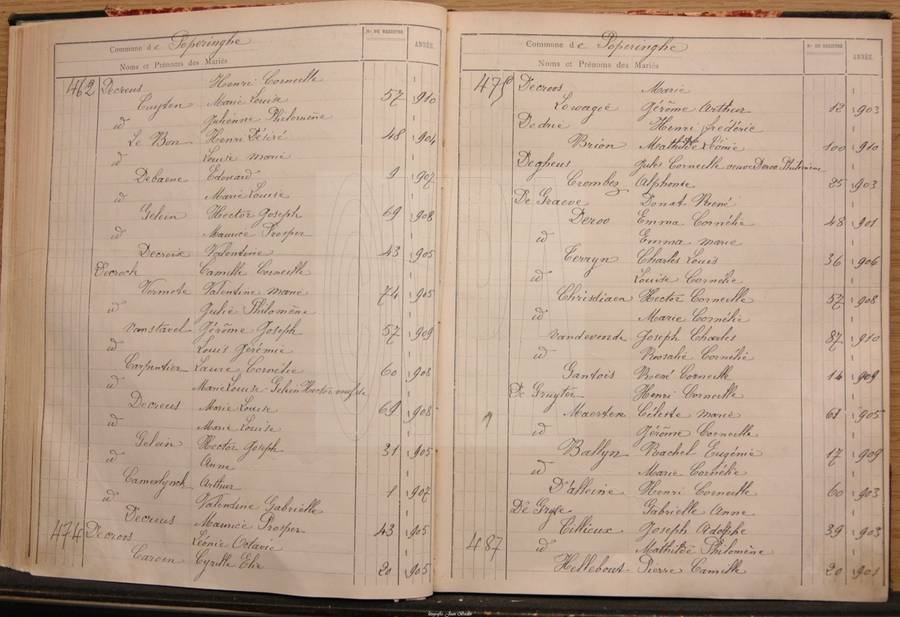 Commune de Poperinghe
Nos DE REGISTRE
ANNÉE.
Noms et Prénoms des Mariés
462 Decreus Henri Corneille
Cuyten Marie Louise 57 1910
id Julienne Philomène
Le Bon Henri Désiré 48 1904
id Louise Marie
Debaene Edouard 9 1907
id Marie Louise
Gelein Hector Joseph 69 1908
id Maurice Prosper
Decroix Valentine 43 1905
Decrock Camille Corneille
Vermote Valentine Marie 74 1905
id Julie Philomène
Vanstavel Jérôme Joseph 57 1909
id Louis Jérémie
Carpentier Laure Cornélie 60 1908
id Marie Louise Gelein Hector
Decreus Marie Louise 69 1908
id Marie Louise
Gelein Hector Joseph 31 1905
id Anne
Camerlynck Arthur 1 1907
id Valentine Gabrielle
Decreus Maurice Prosper 43 1905
474 Decroos Léonie Octavie
Caroen Cyrille Elie 20 1905
Commune de Poperinghe
Nos DE REGISTRE
ANNÉE
Noms et Prénoms des Mariés
475 Decroos Marie
Lowagie Jérôme Arthur 12 1903
Dedrie Henri frédéric
Brion Mathilde Léonie 100 1910
Degheus Jules Corneille Philomène
Crombez Alphonse 85 1903
De Graeve Donat René
Deroo Emma Cornélie 48 1901
id Emma Marie
Terryn Charles Louis 36 1906
id Louise Cornélie
Christiaen Hector Corneille 57 1908
id Marie Cornélie
Vandevende Joseph Charles 87 1910
id Rosalie Cornélie
Gantois René Corneille 14 1909
De Gruyter Henri Corneille
Maerten Céleste Marie 61 1905
id Jérôme Corneille
Ballyn Rachel Eugénie 17 1909
id Marie Cornélie
D'alleine Henri Corneille 60 1903
De Gryse Gabrielle Anne
Cillieux Joseph Adolphe 39 1903
487 id Mathilde Philomène
Hellebout Pierre Camille 20 1901